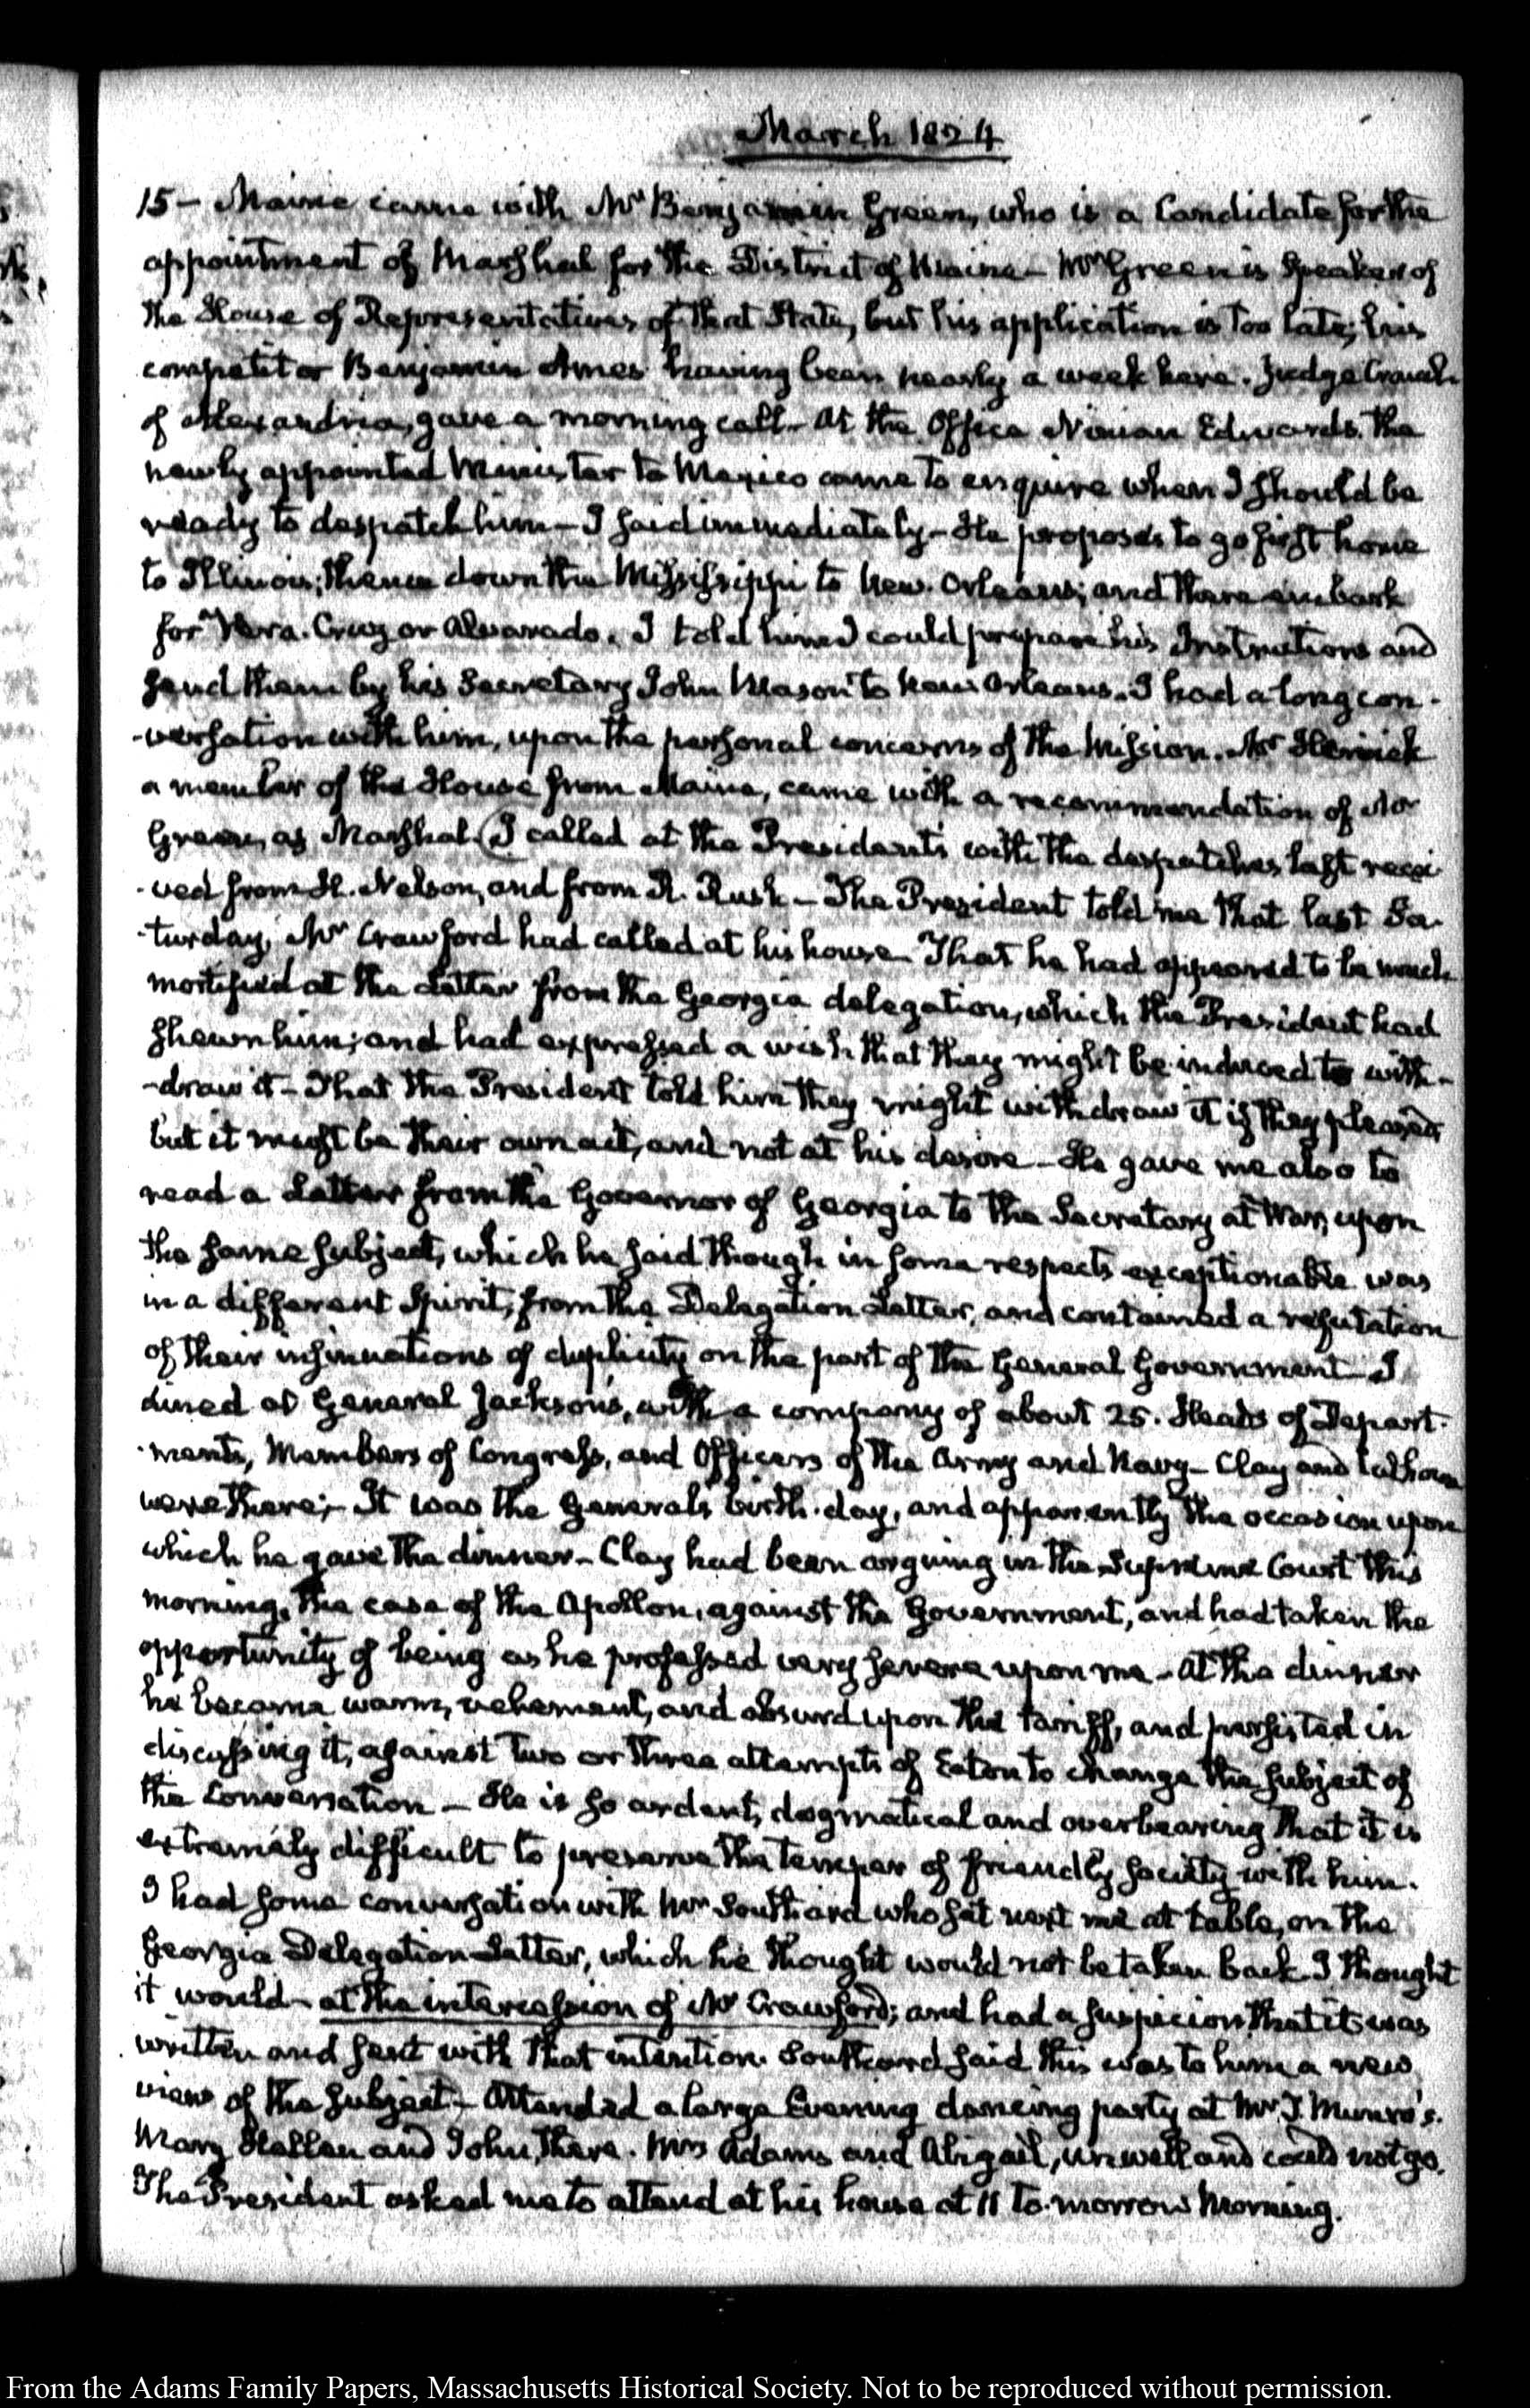 March 1824
15 – Maine came with Mr. Benjamin Green, who is a Candidate for the
appointment of Marshal for the District of Maine – Mr Green is Speaker of
the House of Representatives of that State, but his application is too late; his
competitor Benjamin Ames having been nearly a week here. Judge Cranch
of Alexandria, gave a morning call – At the Office Ninian Edwards the
newly appointed Minister to Mexico came to enquire when I should be
ready to despatch him – I said immediately – He proposes to go first home
to Illinois; thence down the Mississippi to New-Orleans; and there embark
for Vera-Cruz or Alvarado. I told him I could prepare his Instructions and
send them by his Secretary John Mason to New Orleans. I had a long con-
-versation with him, upon the personal concerns of the Mission. Mr Herrick
a member of the House from Maine, came with a recommendation of Mr
Green, as Marshal. (I called at the President's with the despatches last recei-
-ved from H. Nelson, and from R. Rush – The President told me that last Sa-
-turday, Mr Crawford had called at his house That he had appeared to be much
mortified at the Letter from the Georgia delegation, which the President had
shewn him; and had expressed a wish that they might be induced to with-
-draw it – That the President told him they might withdraw it if they pleased,
but it must be their own act, and not at his desire – He gave me also to
read a Letter from the Governor of Georgia to the Secretary at War, upon
the same subject, which he said though in some respects exceptionable was
in a different Spirit, from the Delegation Letter, and contained a refutation
of their insinuations of duplicity on the part of the General Government – I
dined at General Jackson's, with a company of about 25. Heads of Depart-
-ments, Members of Congress, and Officers of the Army and Navy – Clay and Calhoun
were there; – It was the Generals birth-day, and apparently the occasion upon
which he gave the dinner – Clay had been arguing in the Supreme Court this
morning, the case of the Apollon, against the Government, and had taken the
opportunity of being as he professed very severe upon me – At the dinner
he became warm, vehement, and absurd upon the tariff, and persisted in
discussing it, against two or three attempts of Eaton to change the subject of
the Conversation – He is so ardent, dogmatical and overbearing that it is
extremely difficult to preserve the temper of friendly society with him.
I had some conversation with Mr Southard who sat next me at table, on the
Georgia Delegation Letter, which he thought would not be taken back I thought
it would – at the intercession of Mr Crawford; and had a suspicion that it was
written and sent with that intention. Southard said this was to him a new
view of the subject – Attended a large Evening dancing party at Mr T. Munro's.
Mary Hellen and John, there. Mrs Adams and Abigail, unwell and could not go.
The President asked me to attend at his house at 11 to-morrow Morning.
From the Adams Family Papers, Massachusetts Historical Society. Not to be reproduced without permission.